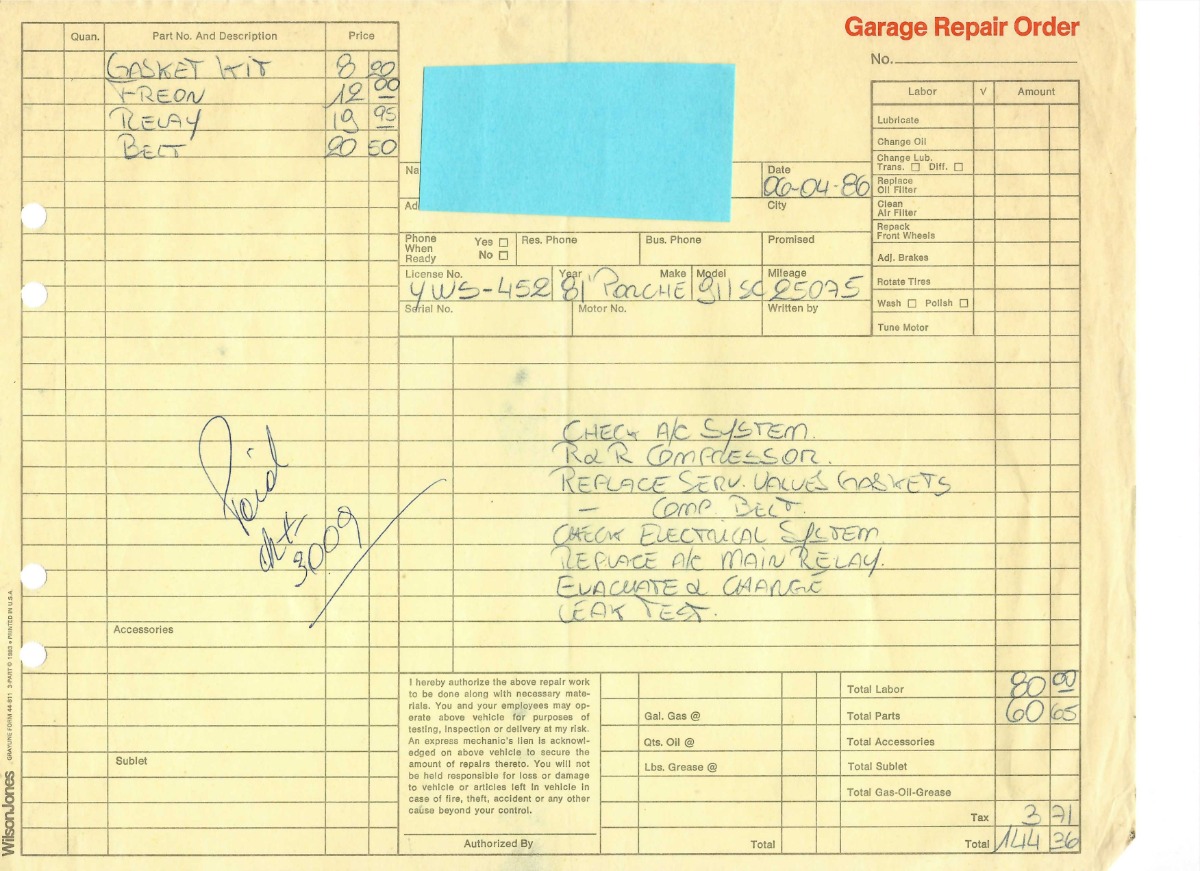 Garage Repair Order
No.
Quan. Part No. And Description Price
GASKET KIT 8 20
FREON 12 00
RELAY 19 95
BELT 20 50
Labor √ Amount
Lubricate
Change Oil
Change Lub.
Trans. ☐ Diff. ☐
Replace
Oil Filter
Clean
Air Filter
Repack
Front Wheels
Adj. Brakes
Rotate Tires
Wash ☐ Polish ☐
Tune Motor
Na
Date
06-04-86
Ad
City
Phone When Ready Yes ☐ No ☐ Res. Phone Bus. Phone Promised
License No. Year Make Model Mileage
YWS-452 81' PORCHE 911SC 25075
Serial No. Motor No. Written by
CHECK A/C SYSTEM.
R&R COMPRESSOR.
REPLACE SERV. VALVES GASKETS
— COMP. BELT.
CHECK ELECTRICAL SYSTEM
REPLACE A/C MAIN RELAY.
EVACUATE & CHARGE
LEAK TEST.
Paid
3009
Accessories
Sublet
I hereby authorize the above repair work
to be done along with necessary mate-
rials. You and your employees may op-
erate above vehicle for purposes of
testing, inspection or delivery at my risk.
An express mechanic's lien is acknowl-
edged on above vehicle to secure the
amount of repairs thereto. You will not
be held responsible for loss or damage
to vehicle or articles left in vehicle in
case of fire, theft, accident or any other
cause beyond your control.
Authorized By
Gal. Gas @
Qts. Oil @
Lbs. Grease @
Total
Total Labor 80 00
Total Parts 60 65
Total Accessories
Total Sublet
Total Gas-Oil-Grease
Tax 3 71
Total 144 36
WilsonJones GRAYLINE FORM 44-811 3-PART © 1983 • PRINTED IN U.S.A.